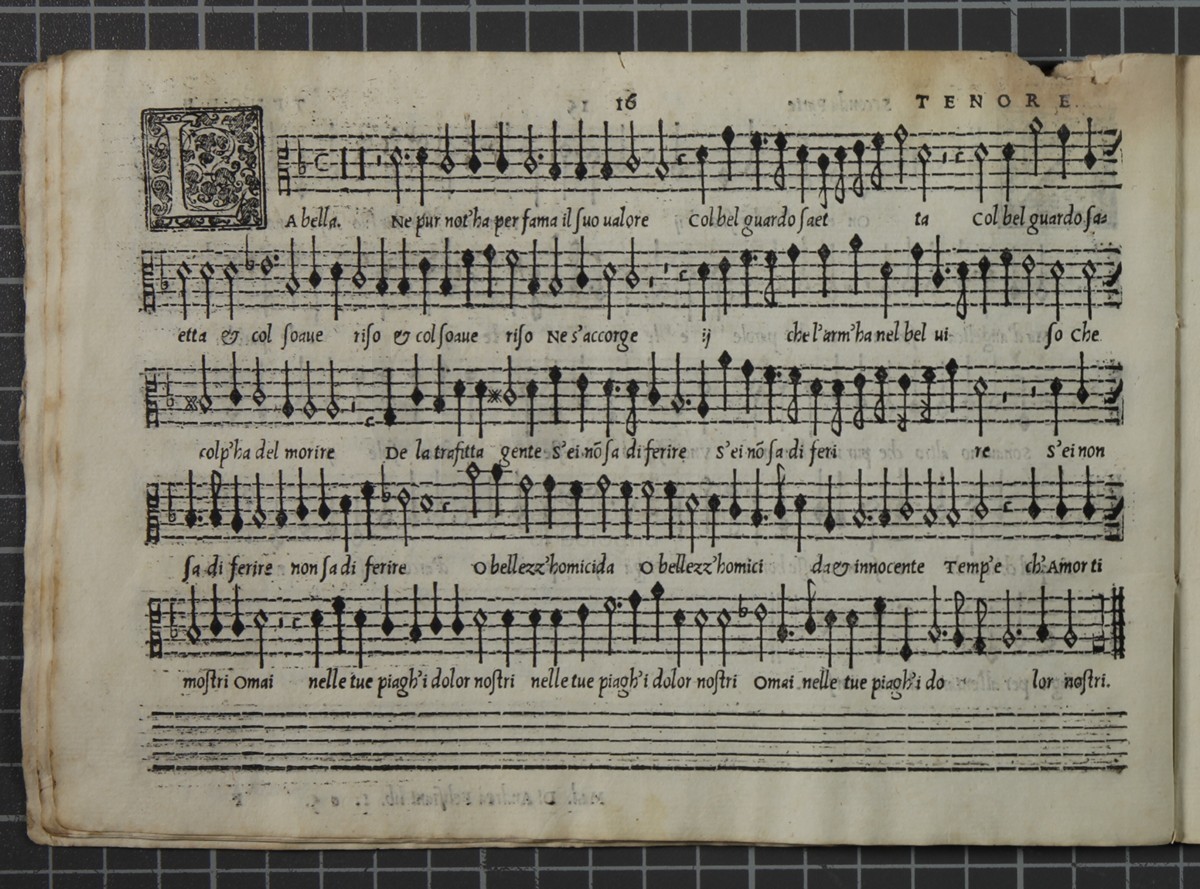 16 TENORE
LA bella. Ne pur not'ha per fama il suo ualore Col bel guardo saet ta Col bel guardo sa-
etta & col soaue riso & col soaue riso Ne s'accorge ij che l'arm'ha nel bel ui so Che
colp'ha del morire De la trafitta gente S'ei nõ sa di ferire S'ei nõ sa di feri re S'ei non
sa di ferire non sa di ferire O bellezz'homicida O bellezz'homici da & innocente Temp'e ch'Amor ti
mostri Omai nelle tue piagh'i dolor nostri nelle tue piagh'i dolor nostri Omai nelle tue piagh'i do lor nostri.